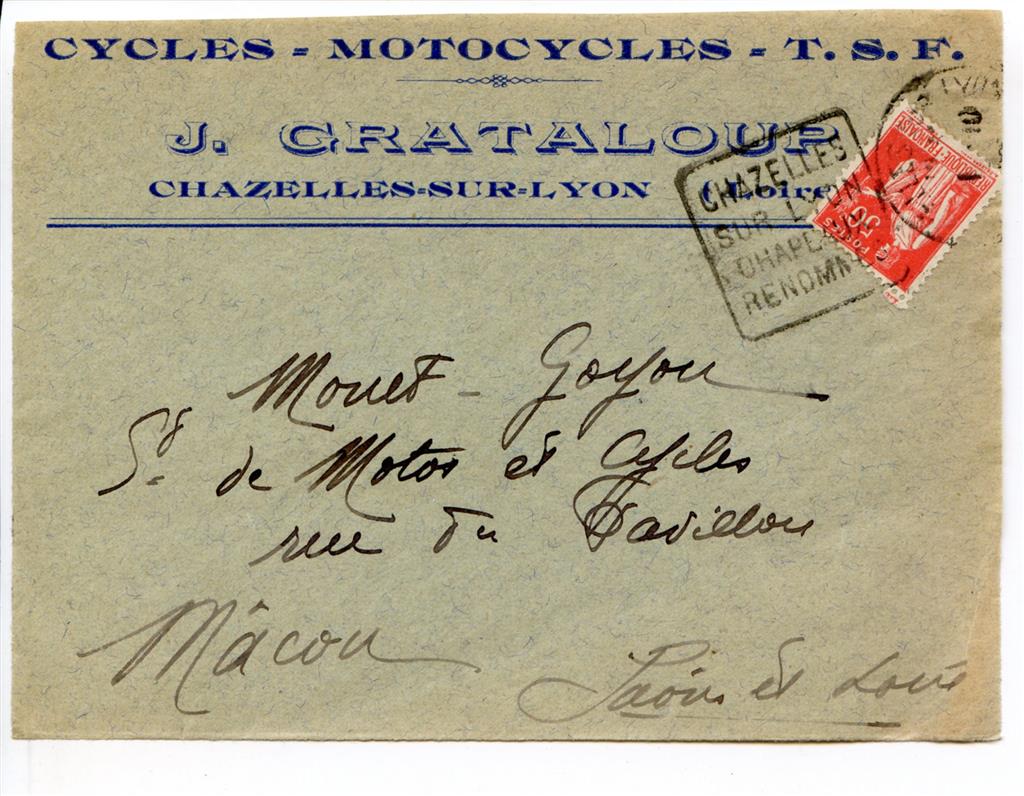 CYCLES - MOTOCYCLES - T. S. F.
J. GRATALOUP
CHAZELLES-SUR-LYON (Loire
CHAZELLES
SUR LYON
CHAPE
RENOMM
LYON
REPUBLIQUE FRANÇAISE
POSTES
50
Monet - Goyon
Sté de Motos et Cycles
rue du Pavillon
Mâcon
Saône et Loire